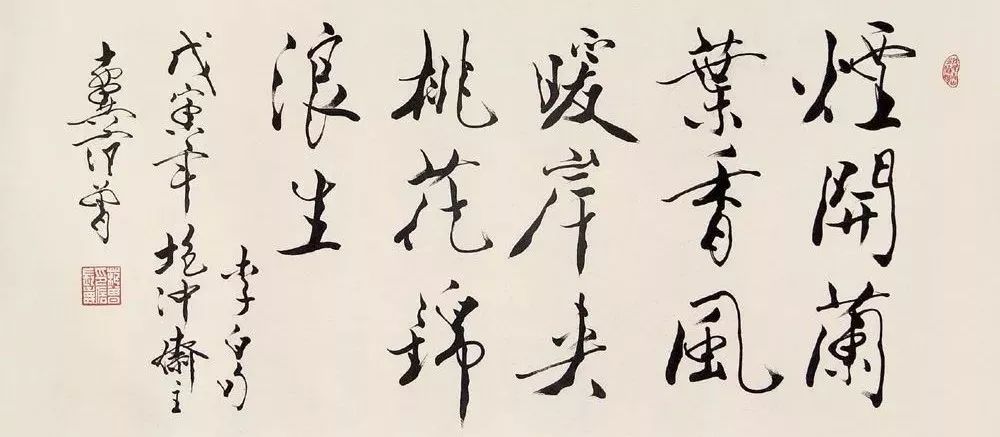 煙開蘭
葉香風
暖岸夾
桃花錦
浪生
李白
戊寅年抱沖齋主
十翼范曾